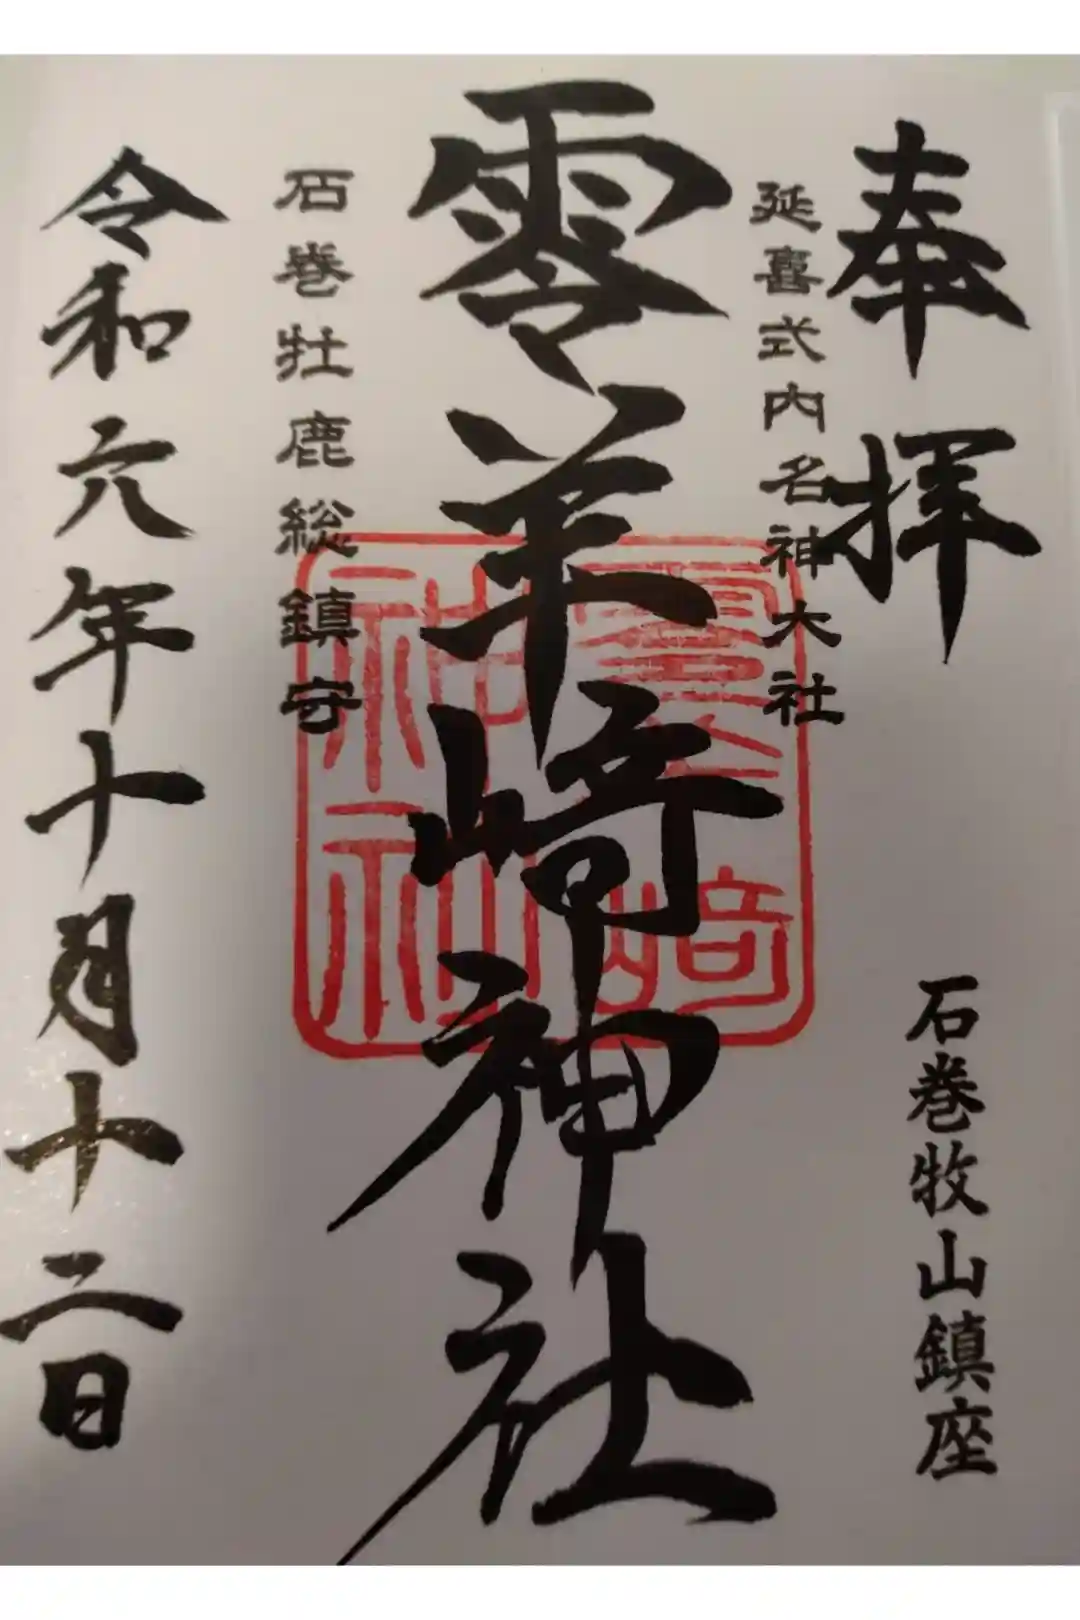 奉拝
石巻牧山鎮座
延喜式内名神大社
零羊崎神社
石巻牡鹿総鎮守
令和六年十月十二日